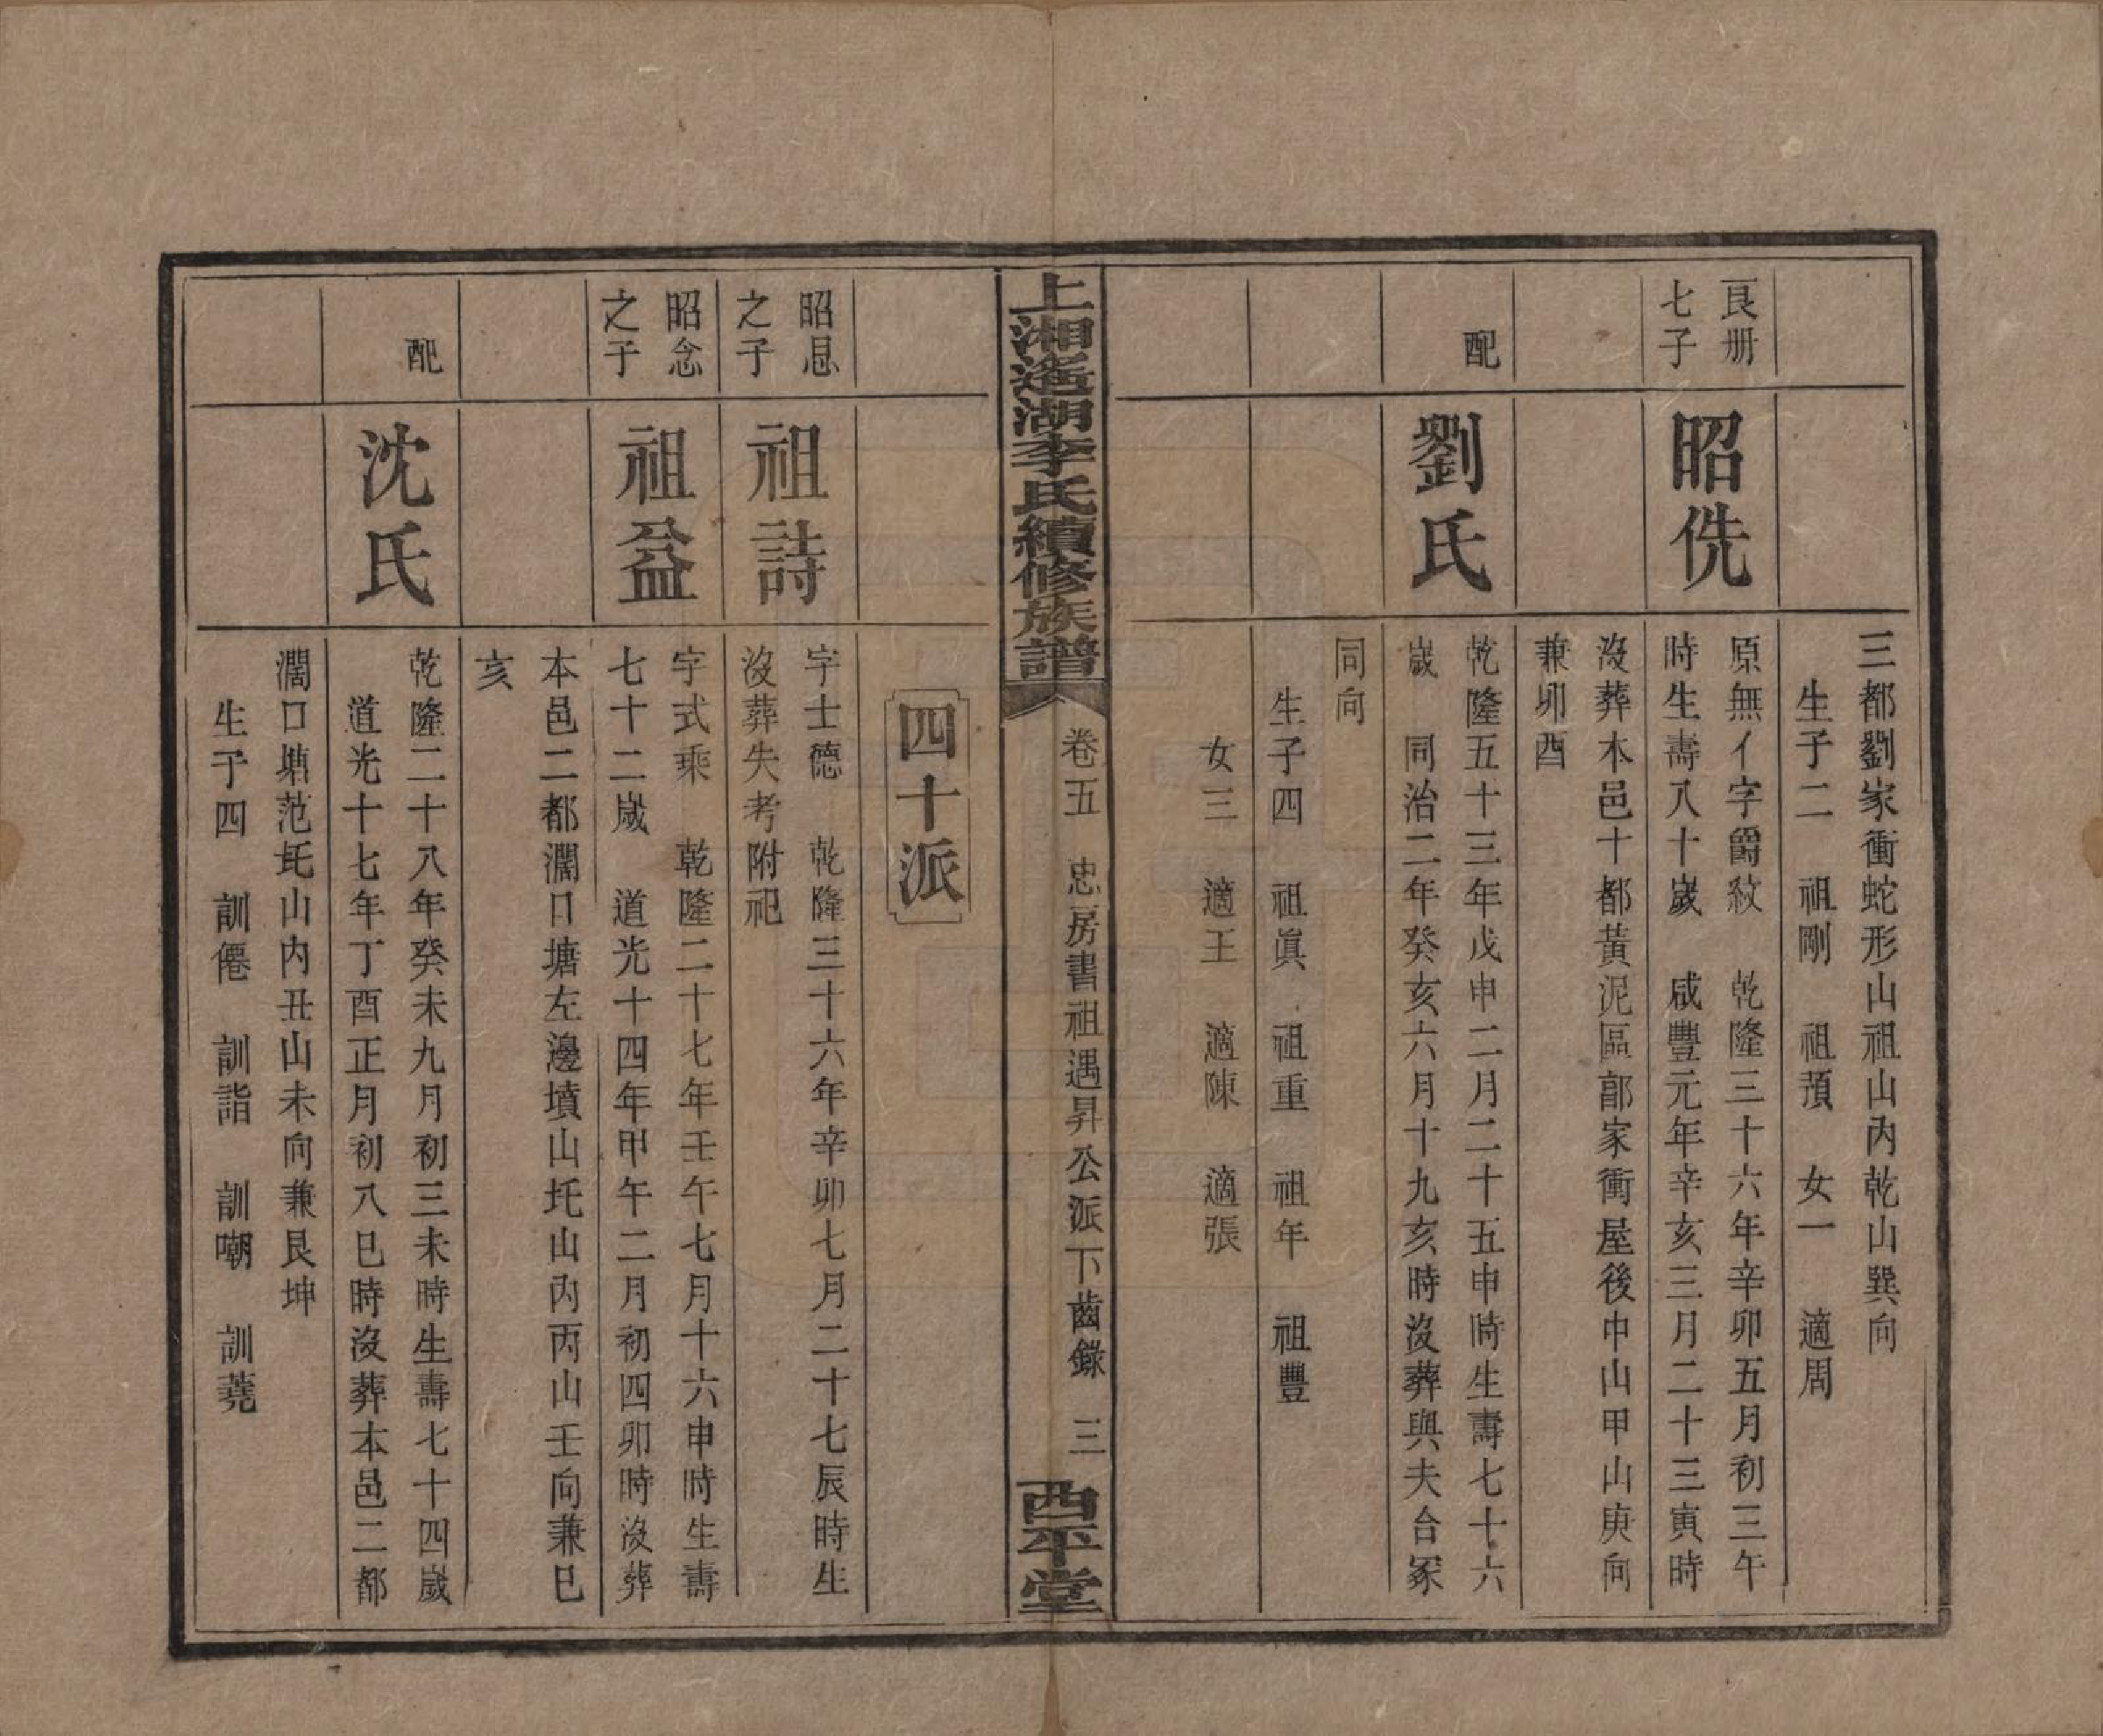 三都劉家衝蛇形山祖山內乾山巽向
生子二　祖剛　祖預　女一　適周
良冊
七子
昭侁
原無亻字爵紋　乾隆三十六年辛卯五月初三午
時生壽八十歲　咸豐元年辛亥三月二十三寅時
沒葬本邑十都黃泥區部家衝屋後中山甲山庚向
兼卯酉
配
劉氏
乾隆五十三年戊申二月二十五申時生壽七十六
歲　同治二年癸亥六月十九亥時沒葬與夫合冢
同向
生子四　祖眞　祖重　祖年　祖豐
女三　適王　適陳　適張
上湘遙湖李氏續修族譜
卷五　忠房書祖遇昇公派下齒錄　三
西平堂
四十派
昭恳
之子
祖詩
字士德　乾隆三十六年辛卯七月二十七辰時生
沒葬失考附祀
昭念
之子
祖益
字式乘　乾隆二十七年壬午七月十六申時生壽
七十二歲　道光十四年甲午二月初四卯時沒葬
本邑二都濶口塘左邊墳山圫山內丙山壬向兼巳
亥
配
沈氏
乾隆二十八年癸未九月初三未時生壽七十四歲
道光十七年丁酉正月初八巳時沒葬本邑二都
濶口塘范圫山內丑山未向兼艮坤
生子四　訓僊　訓詣　訓嘲　訓蕘